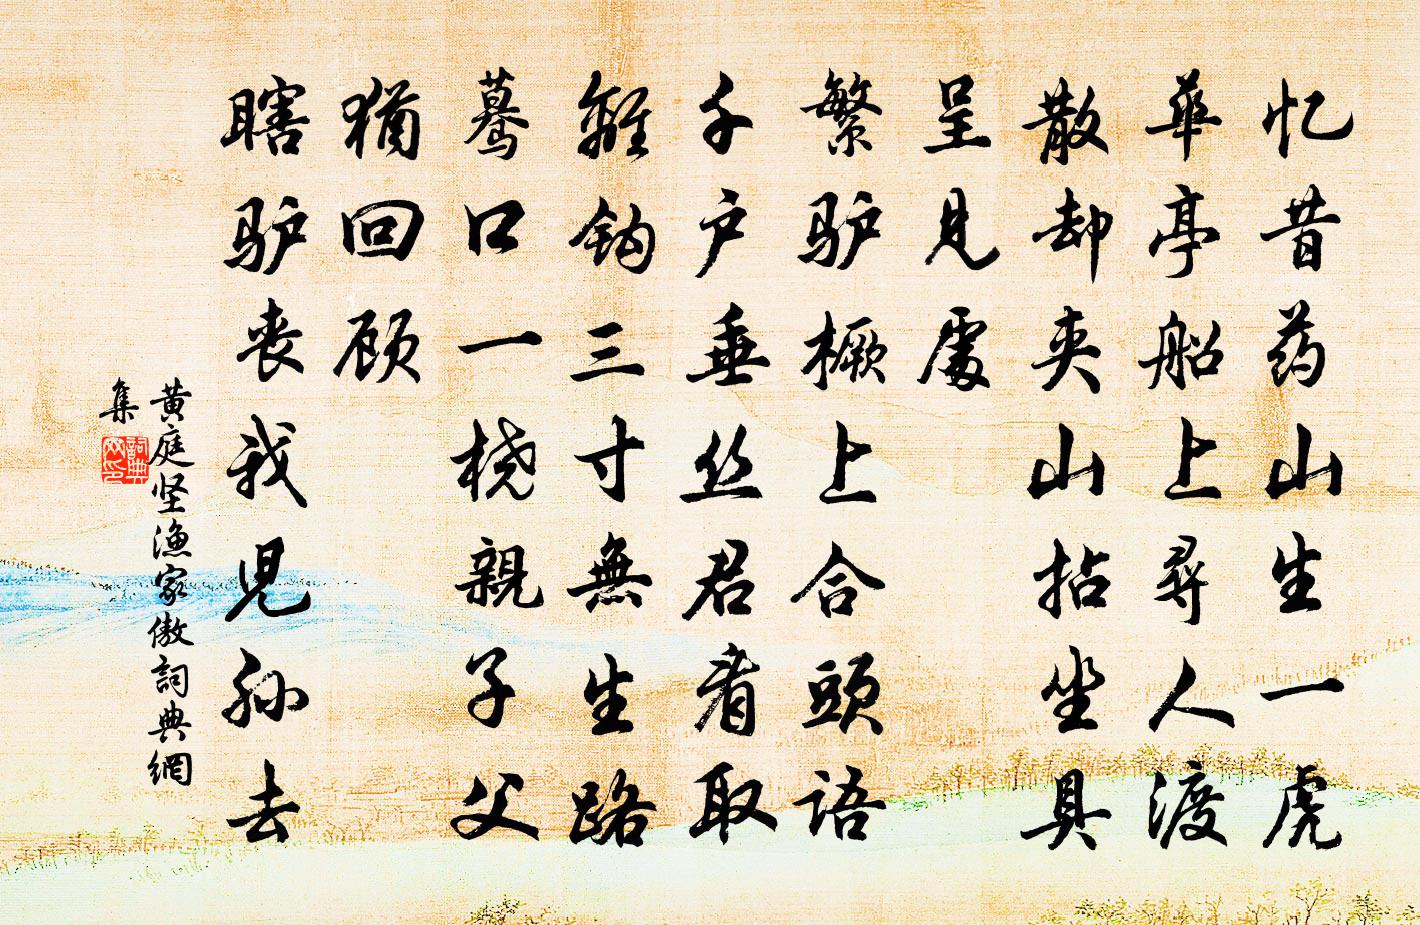 忆昔药山生一虎
華亭船上尋人渡
散却夹山拈坐具
呈見處
繁驴橛上合頭語
千户垂丝君看取
離钩三寸無生路
蓦口一桡親子父
猶回顾
瞎驴丧我児孙去
黄庭坚渔家傲詞典網
集
詞典
网印